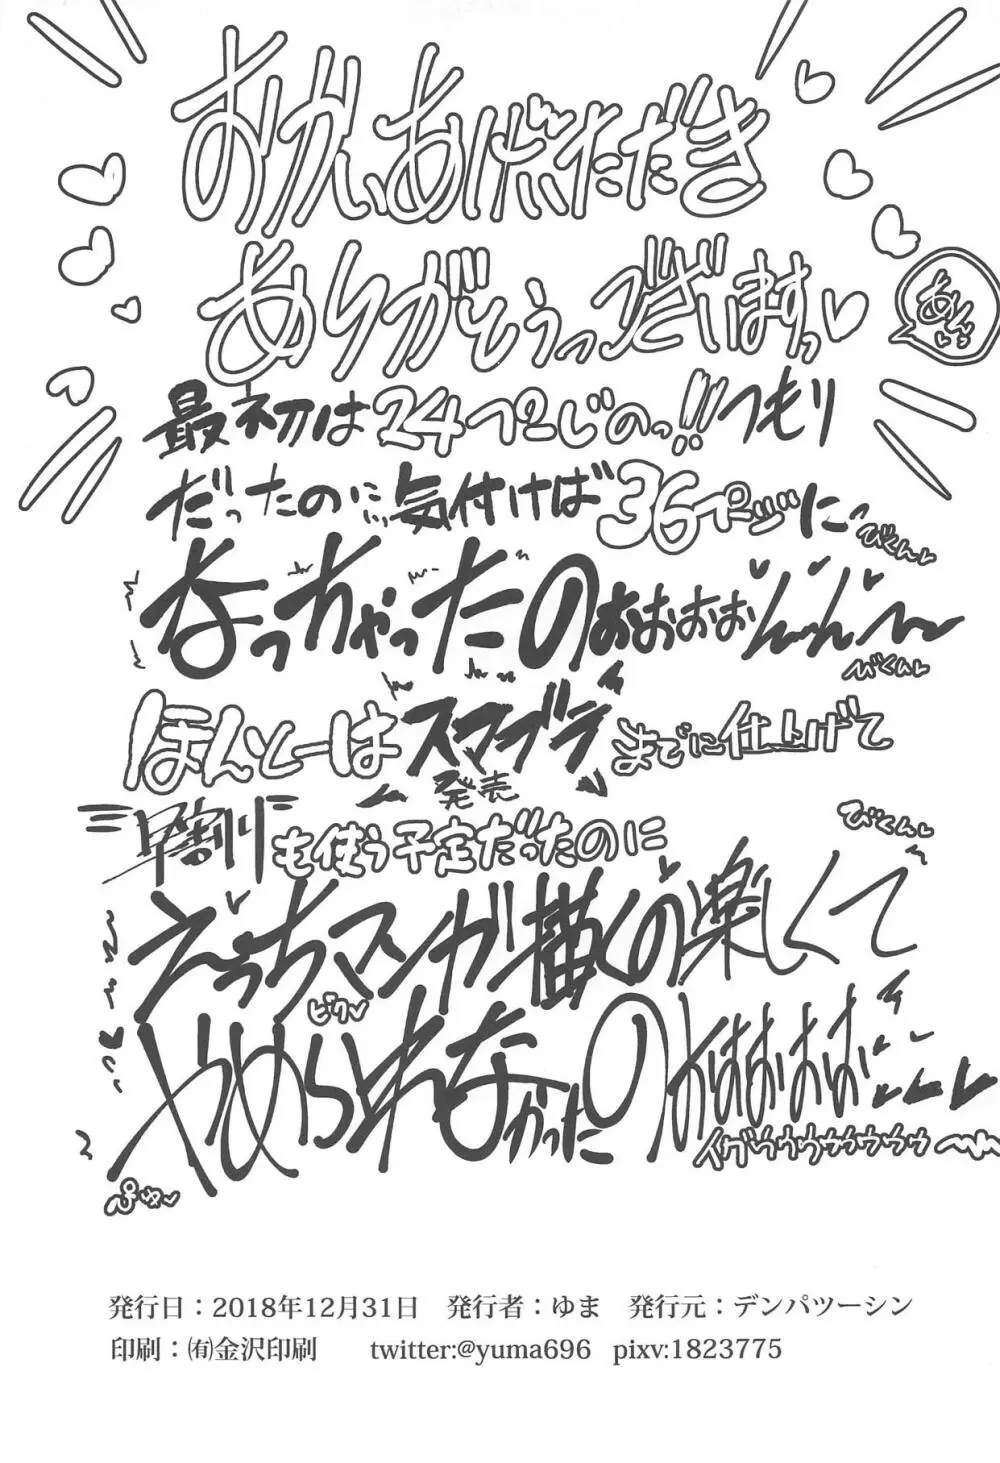 おかいあげいただき
ありがとうっございますっ♡
あんっ
最初は24ページのっ!!つもり
だったのに…気付けば36ページに
びくんっ
なっちゃったのぉおおおんんん〜
びくんっ
ほんとーはスマブラまでに仕上げて
発売
早割りも使う予定だったのに
びくんっ
えっちマンガ描くの楽しくて
ビクッ
やめられなかったのおおおおお
イグゥゥゥゥゥゥゥゥゥ
ぷゅっ
発行日：2018年12月31日　発行者：ゆま　発行元：デンパツーシン
印刷：㈲金沢印刷　twitter:@yuma696　pixv:1823775